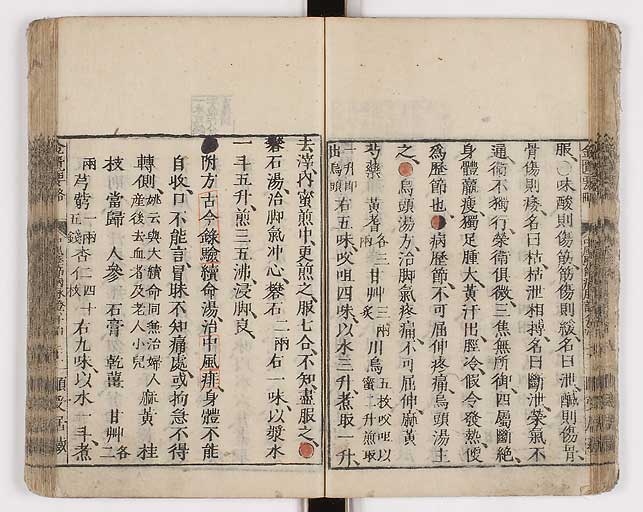 服、○味酸則傷筋、筋傷則緩、名曰泄、鹹則傷骨、
骨傷則痿、名曰枯、枯泄相搏、名曰斷泄、榮氣不
通、衞不獨行、榮衞俱微、三焦無所御、四屬斷絶、
身體羸瘦、獨足腫大、黃汗出、脛冷、假令發熱、便
爲歷節也、病歷節、不可屈伸疼痛、烏頭湯主
之、烏頭湯方治脚氣疼痛、不可屈伸、麻黃
芍藥 黃耆 各三兩 甘艸 三兩炙 川烏 五枚㕮咀以蜜二升煎取
一升卽出烏頭 右五味、㕮咀四味、以水三升、煮取一升、
去滓、內蜜煎中、更煎之、服七合、不知盡服之、
礬石湯、治脚氣冲心、礬石 二兩 右一味、以漿水
一斗五升、煎三五沸、浸脚良、
附方 古今錄驗續命湯、治中風痱、身體不能
自收、口不能言、冒昧不知痛處、或拘急不得
轉側、姚云與大續命同兼治婦人產後去血者及老人小兒 麻黃 桂
枝 當歸 人參 石膏 乾薑 甘艸 各二
兩 芎藭 一兩五錢 杏仁 四十枚 右九味、以水一斗、煮